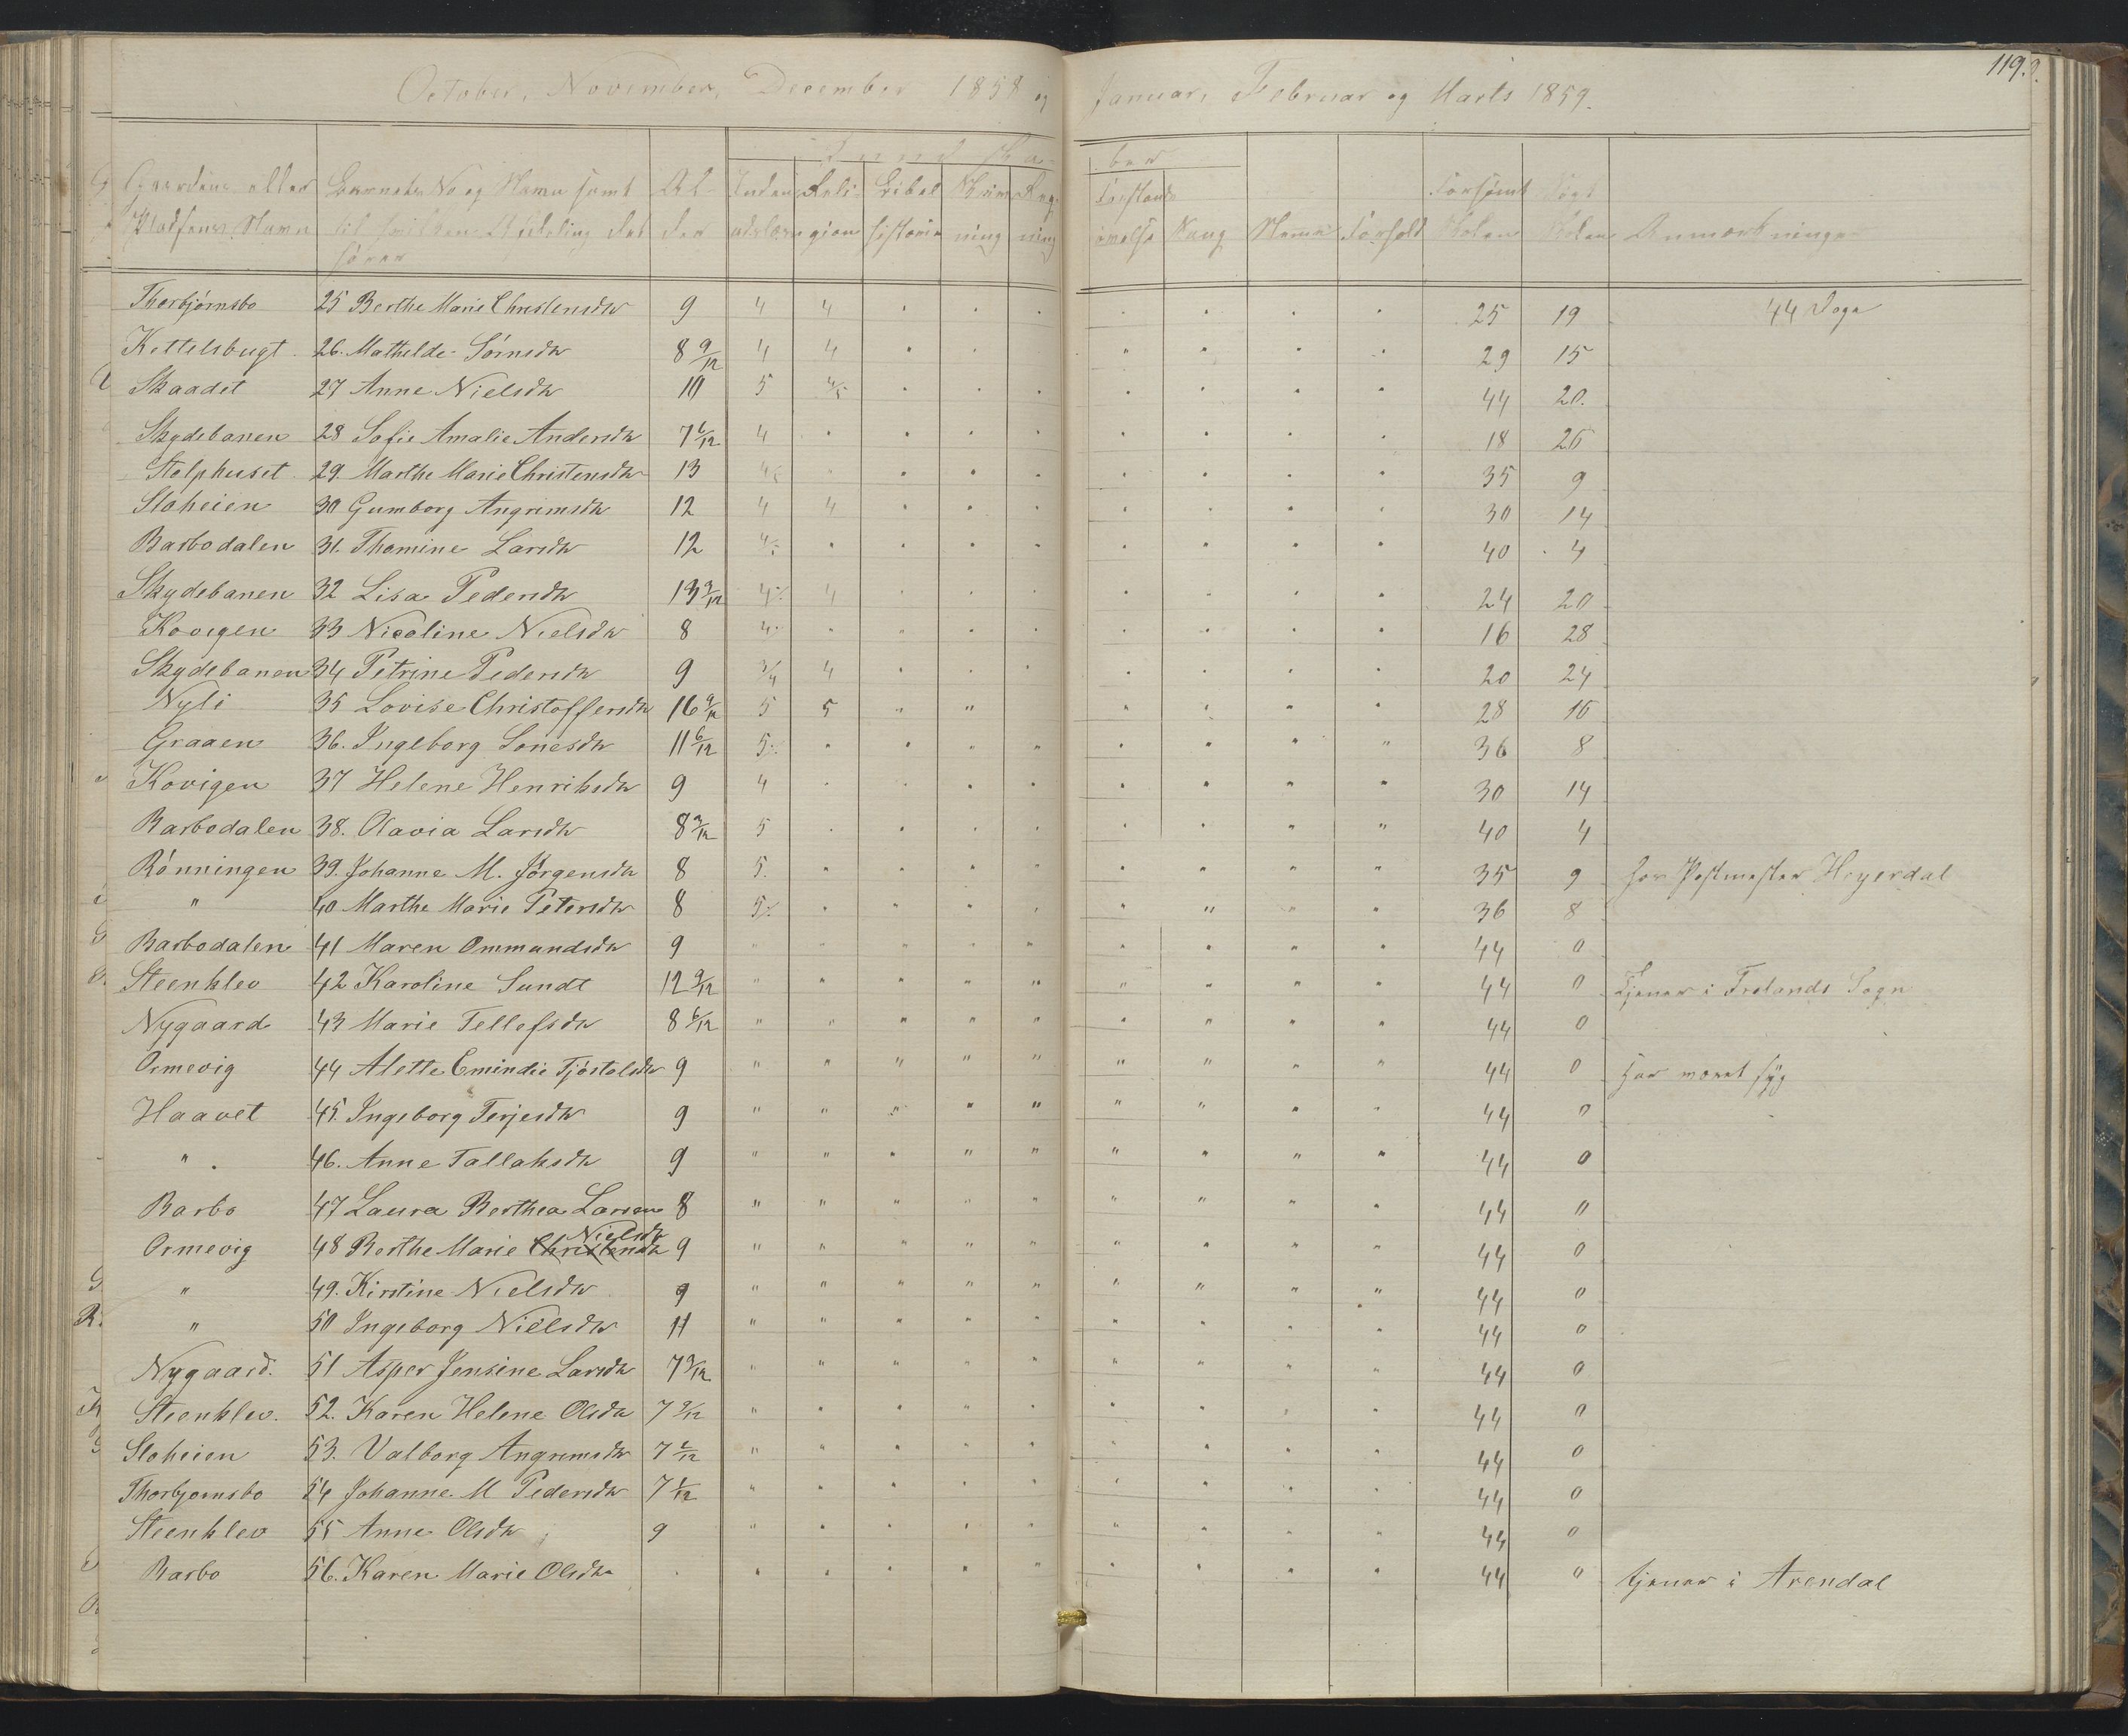 119.
October, November, December 1858 og Januar, Februar og Marts 1859.
Kundska- ber
Gaardens eller Barnets No og Navn samt Al- Inden- Reli- Bibel Skriv- Reg- Forstands Forsømt Søgt
Pladsens Navn til hvilken Afdeling det der adslæsn gion historie ning ning øvelse Sang Forhold Skolen Skolen Anmærkninger
hører
Thorbjørnsbo 25 Berthe Marie Christensdtr 9 4 4 25 19 44 Dage
Kettelsbugt 26. Mathilde Sørnsdtr 8 9/12 4 4 29 15
Skaadet 27 Anne Nielsdtr 10 5 4/5 44 20.
Skydebanen 28 Sofie Amalie Andersdtr 7 6/12 4 18 26
Stolphuset 29. Marthe Marie Christensdtr 13 35 9
Sloheien 30 Gumborg Angrimsdtr 12 4 4 30 14
Barbodalen 31. Thomine Larsdtr 12 40 4
Skydebanen 32 Lisa Pedersdtr 13 3/12 4 24 20
Kovigen 33 Nicoline Nielsdtr 8 16 28
Skydebanen 34 Petrine Pedersdtr 9 3/4 4 20 24
Nyli 35 Lovise Christoffersdtr 16 9/12 5 5 " " 28 16
Graaen 36. Ingeborg Lonesdtr 11 6/12 5. 36 8
Kovigen 37 Helene Henriksdtr 9 4 30 14
Barbodalen 38. Olavia Larsdtr 8 9/12 5 40 4
Rønningen 39. Johanne M. Jørgensdtr 8 5. 35 9 hos Postmester Heyerdal
" 40 Marthe Marie Petersdtr 8 36 8
Barbodalen 41 Maren Ommundsdtr 9 " " " " " 44 0
Steenklev 42 Karoline Sundt 12 9/12 " " " " " 44 0 Tjener i Frolands Sogn
Nygaard 43 Marie Tellefsdtr 8 6/12 " " " " " 44 0
Ormevig 44 Alette Emindie Tjøstolsdtr 9 " " " " " " " " " 44 0 har været syg
Haavet 45. Ingeborg Terjesdtr 9 " " " " " " " " " 44 0
" 46. Anne Tallaksdtr 9 " " " " " " " " " 44 0
Barbo 47 Laura Berthea Larsen 8 " " " " " " " " " 44 0
Nielsdtr
Ormevig 48 Berthe Marie Christensdtr 9 " " " " " " " " " 44 0
" 49. Kirstine Nielsdtr 9 " " " " " " " " " 44 0
" 50 Ingeborg Nielsdtr 11 " " " " " " " " " 44 0
Nygaard. 51 Asper Jensine Larsdtr 7 9/12 " " " " " " " " " 44 0
Steenklev. 52. Karen Helene Olsdtr 7 9/12 " " " " " " " " " 44 0
Sloheien 53. Valborg Angrimsdtr 7 6/12 " " " " " " " " " 44 0
Thorbjørnsbo 54 Johanne M Pedersdtr " " " " " " " " " 44 0
Steenklev 55 Anne Olsdtr 9 " " " " " " " " " 44 0
Barbo 56. Karen Marie Olsdtr " " " " " " " " " 44 0 tjener i Arendal